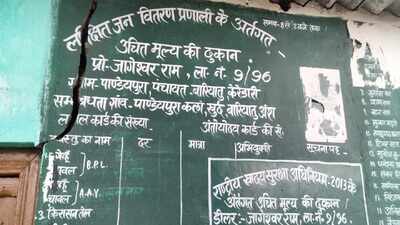 समय-8 से
लक्षित जन वितरण प्रणाली के अंतर्गत
उचित मूल्य की दुकान
प्रो॰-जागेश्वर राम, ला॰ नं॰ 9/96
ग्राम-पाण्डेयपुरा, पंचायत-बारियातु केरेडारी
सम्बधता गाँव-पाण्डेयपुरा कला, खुर्द, बारियातु
लाल कार्ड की संख्या- अंतोयोदय कार्ड की सं॰
वस्तु का नाम दर मात्रा अभियुक्ती सूचना पट्ट
गेहूँ
चावल B.P.L.
गेहूँ
चावल A.A.Y.
3. किरासन तेल
राष्ट्रीय खाद्य सुरक्षा अधिनियम, 2013 के
अंतर्गत उचित मूल्य की दुकान
डीलर:-जागेश्वर राम, ला॰ नं॰ 9/96.